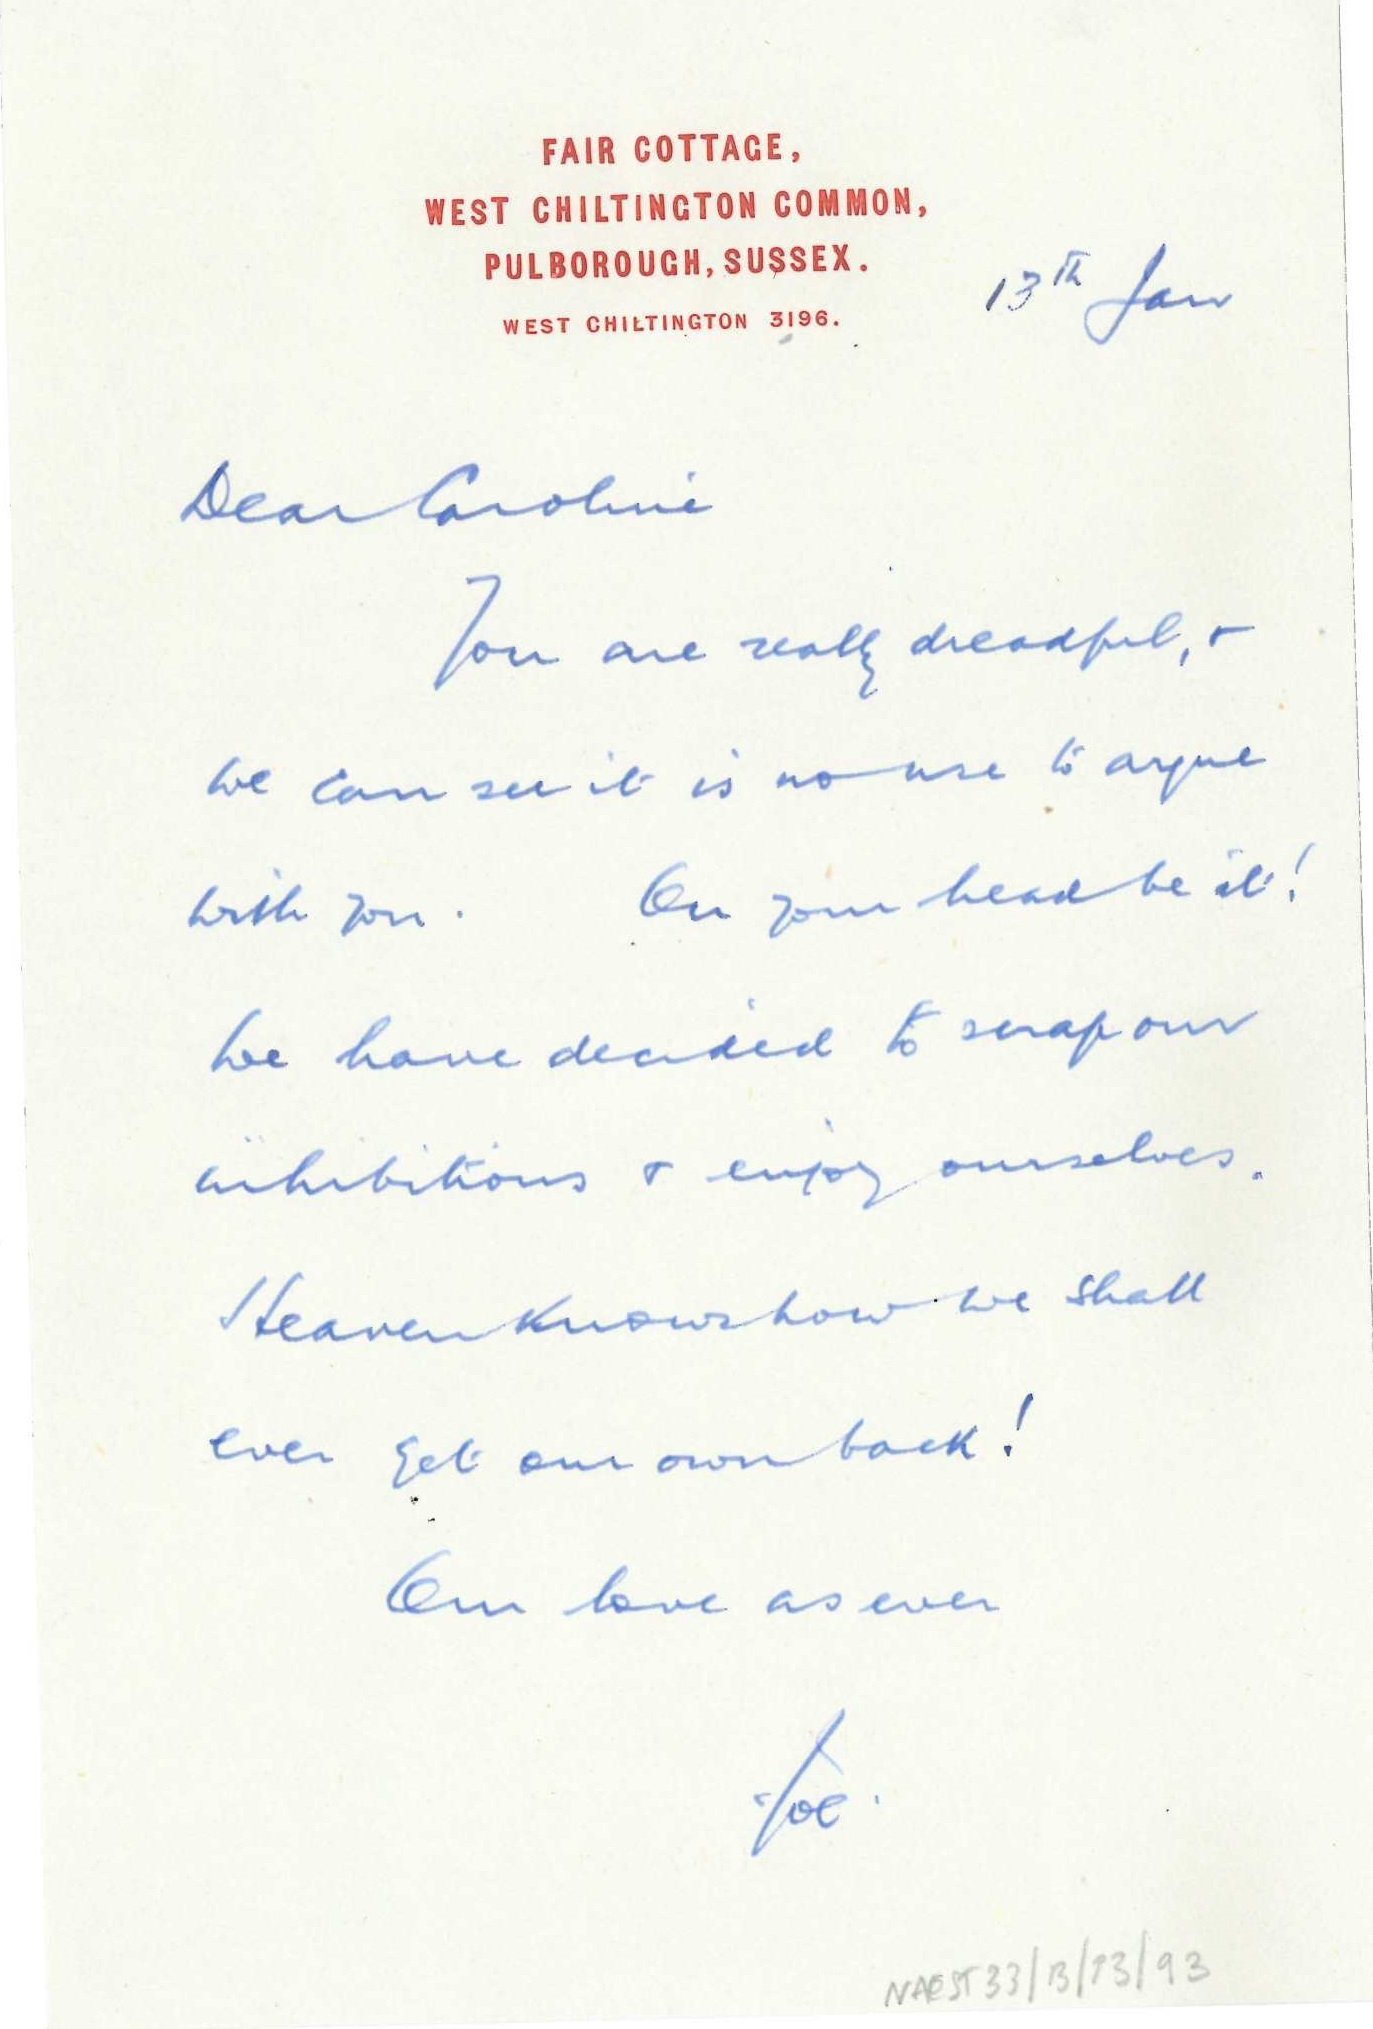 FAIR COTTAGE,
WEST CHILTINGTON COMMON,
PULBOROUGH, SUSSEX.
WEST CHILTINGTON 3196.
13th Jan
Dear Caroline
You are really dreadful, &
we can see it is no use to argue
with you. On your head be it!
We have decided to scrap our
inhibitions & enjoy ourselves.
Heaven knows how we shall
ever get our own back!
Our love as ever
Joe.
NAEST 33/13/13/93